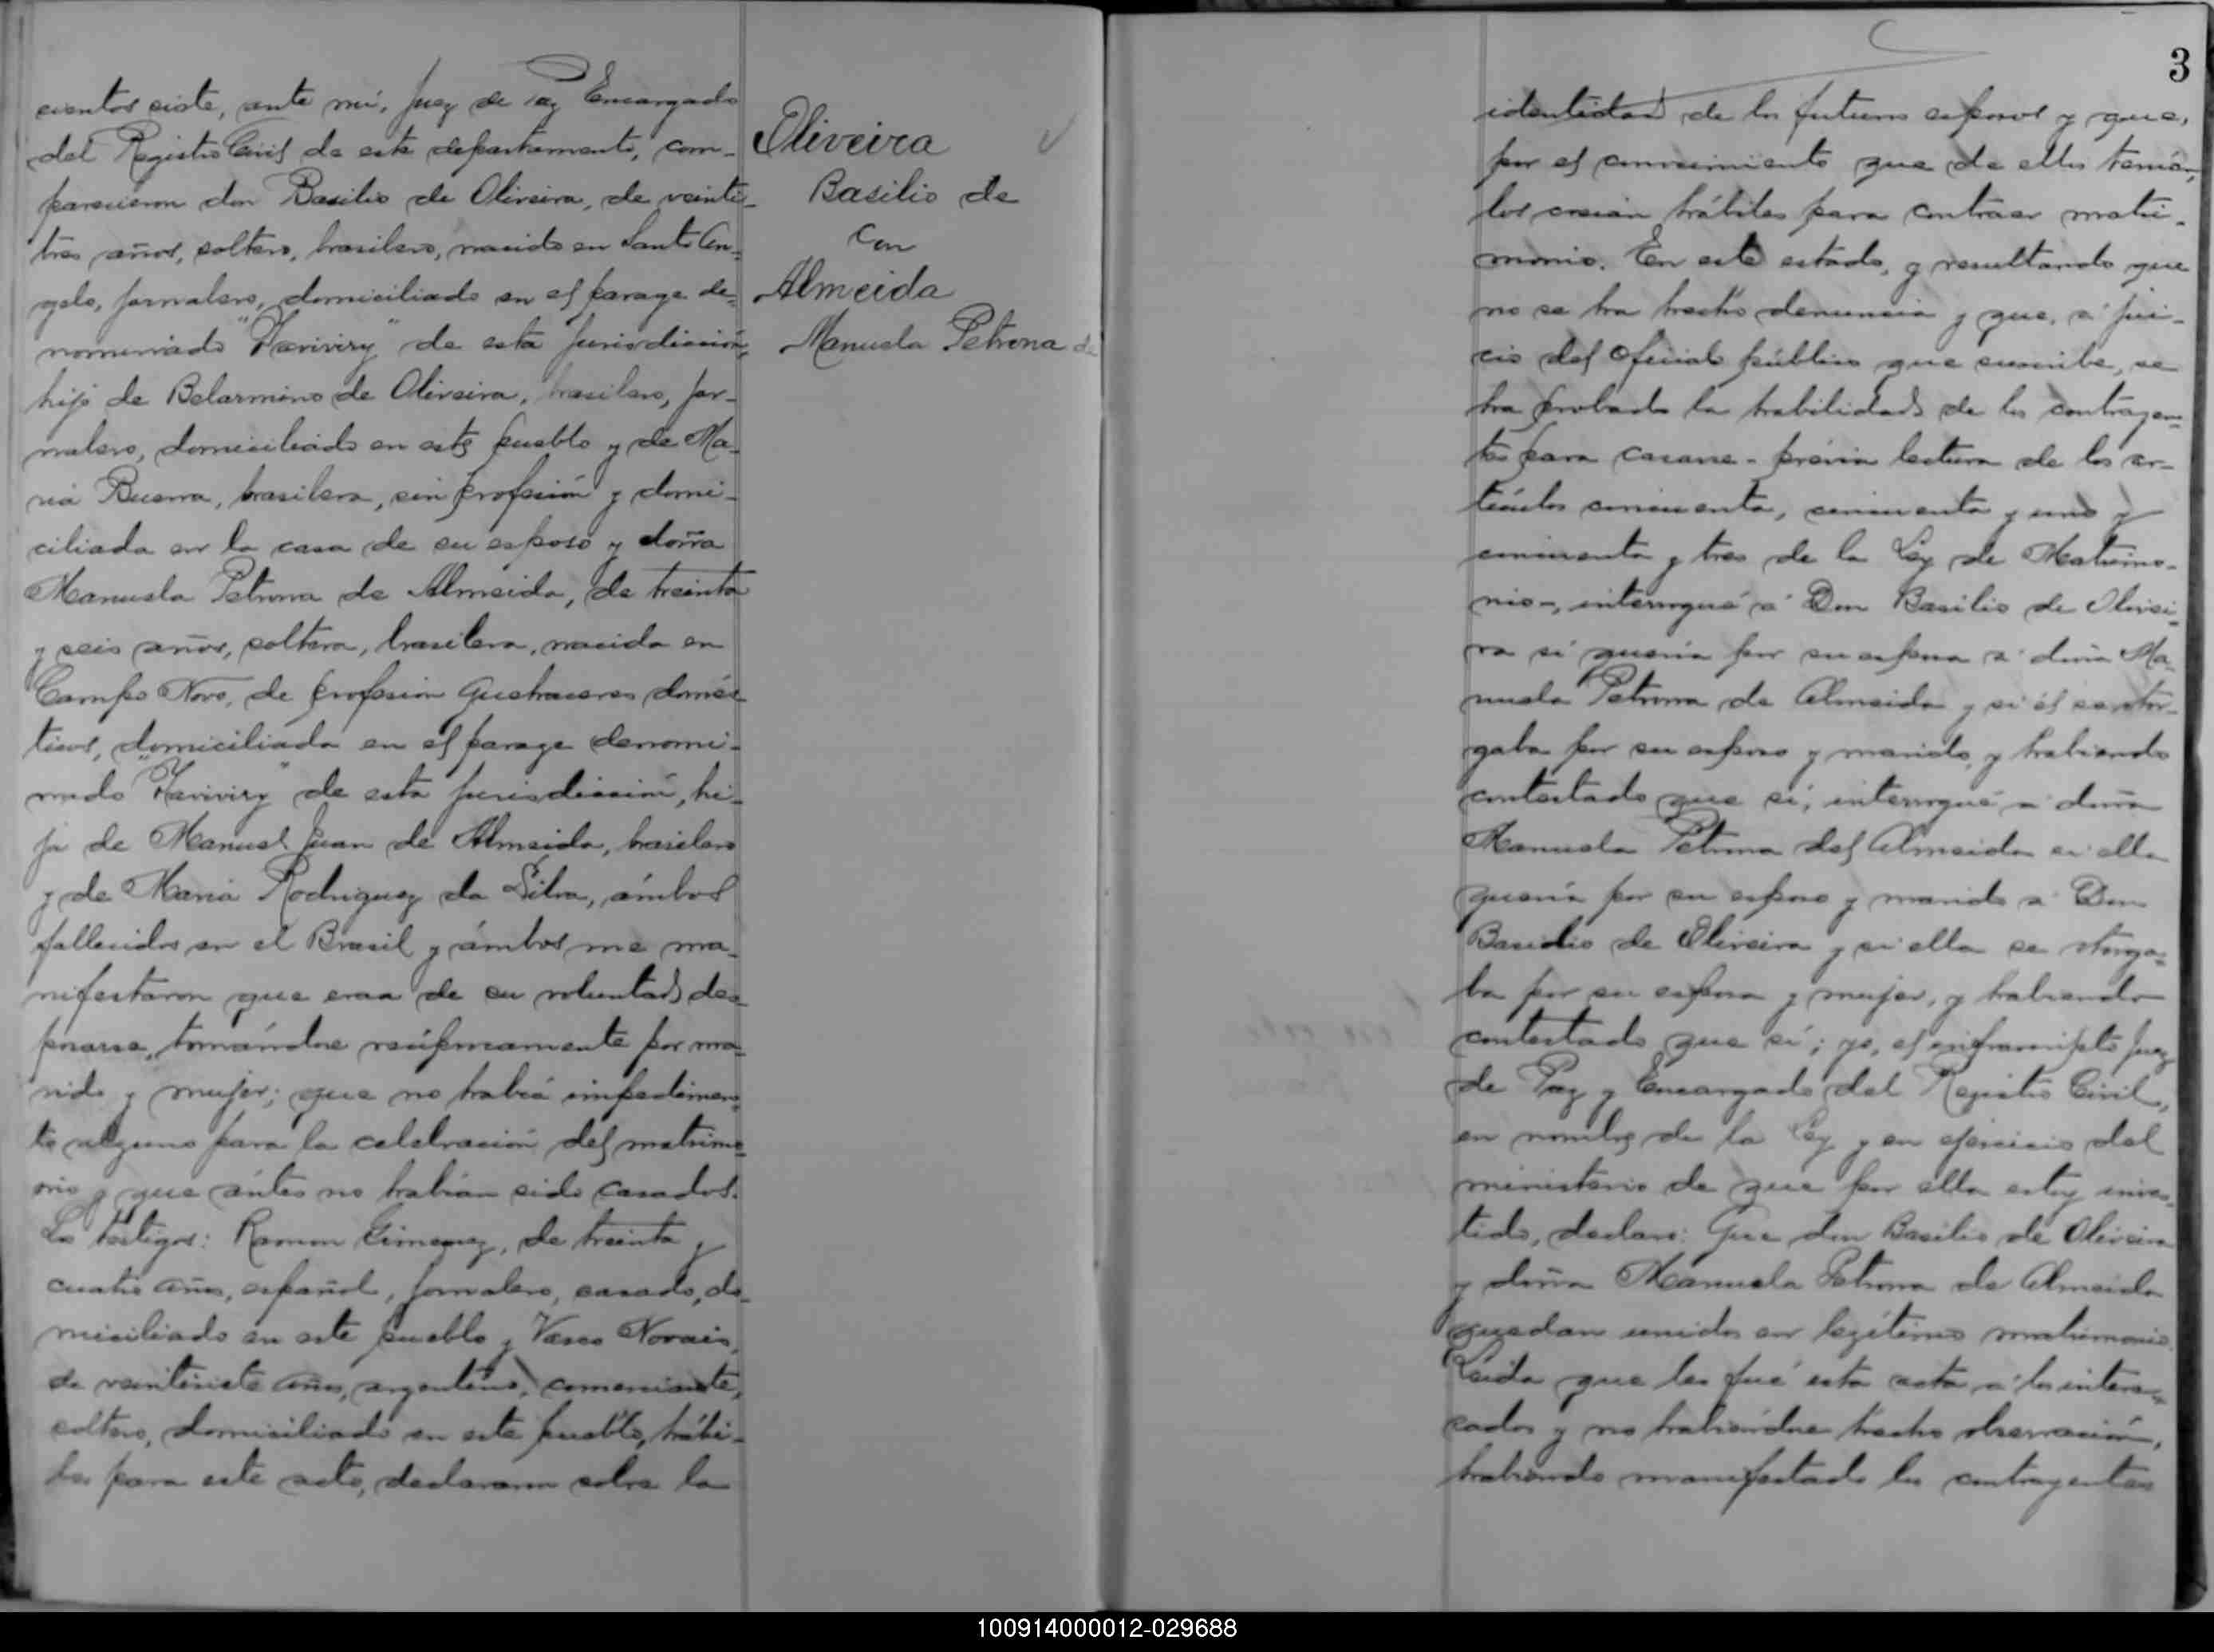 cientos siete, ante mí, Juez de Paz Encargado
del Registro Civil de este departamento, com-
parecieron don Basilio de Oliveira, de veinti-
tres años, soltero, brasilero, nacido en Santo An-
gelo, jornalero, domiciliado en el parage de-
nominado de esta jurisdicción,
hijo de Belarmino de Oliveira, brasilero, jor-
nalero, domiciliado en este pueblo y de Ma-
ria Buena, brasilera, sin profesión y domi-
ciliada en la casa de su esposo y doña
Manuela Petrona de Almeida, de treinta
y seis años, soltera, brasilera, nacida en
Campo Novo, de profesion quehaceres domés-
ticos, domiciliada en el parage denomi-
nado de esta jurisdicción, hi-
ja de Manuel Juan de Almeida, brasilero
y de Maria Rodriguez da Silva, ámbos
fallecidos en el Brasil y ámbos me ma-
nifestaron que eran de su voluntad des-
posarse, tomándose recíprocamente por ma-
rido y mujer; que no había impedimen-
to alguno para la celebración del matrimo-
nio y que ántes no habían sido casados.
Los testigos: Ramon Gimenez, de treinta y
cuatro años, español, jornalero, casado, do-
miciliado en este pueblo y Vasco Novais,
de veintisiete años, argentino, comerciante,
soltero, domiciliado en este pueblo, hábi-
les para este acto, declararon sobre la
Oliveira
Basilio de
con
Almeida
Manuela Petrona de
3
identidad de los futuros esposos y que,
por el conocimiento que de ellos tenían,
los creían hábiles para contraer matri-
monio. En este estado, y resultando que
no se ha hecho denuncia y que, á jui-
cio del oficial público que suscribe, se
ha probado la habilidad de los contrayen-
tes para casarse - prévia lectura de los ar-
tículos cincuenta, cincuenta y uno y
cincuenta y tres de la Ley de Matrimo-
nio -, interrogué á Don Basilio de Olivei-
ra si quería por su esposa á doña Ma-
nuela Petrona de Almeida y si él se otor-
gaba por su esposo y marido, y habiendo
contestado que sí, interrogué á doña
Manuela Petrona de Almeida si ella
quería por su esposo y marido á Don
Basilio de Oliveira y si ella se otorga-
ba por su esposa y mujer, y habiendo
contestado que sí; yo, el infrascripto Juez
de Paz y Encargado del Registro Civil,
en nombre de la Ley y en ejercicio del
ministerio de que por ella estoy inves-
tido, declaro: Que don Basilio de Oliveira
y doña Manuela Petrona de Almeida
quedan unidos en legítimo matrimonio.
Leída que les fué esta acta á los intere-
sados y no habiéndose hecho observación,
habiendo manifestado los contrayentes
100914000012-029688